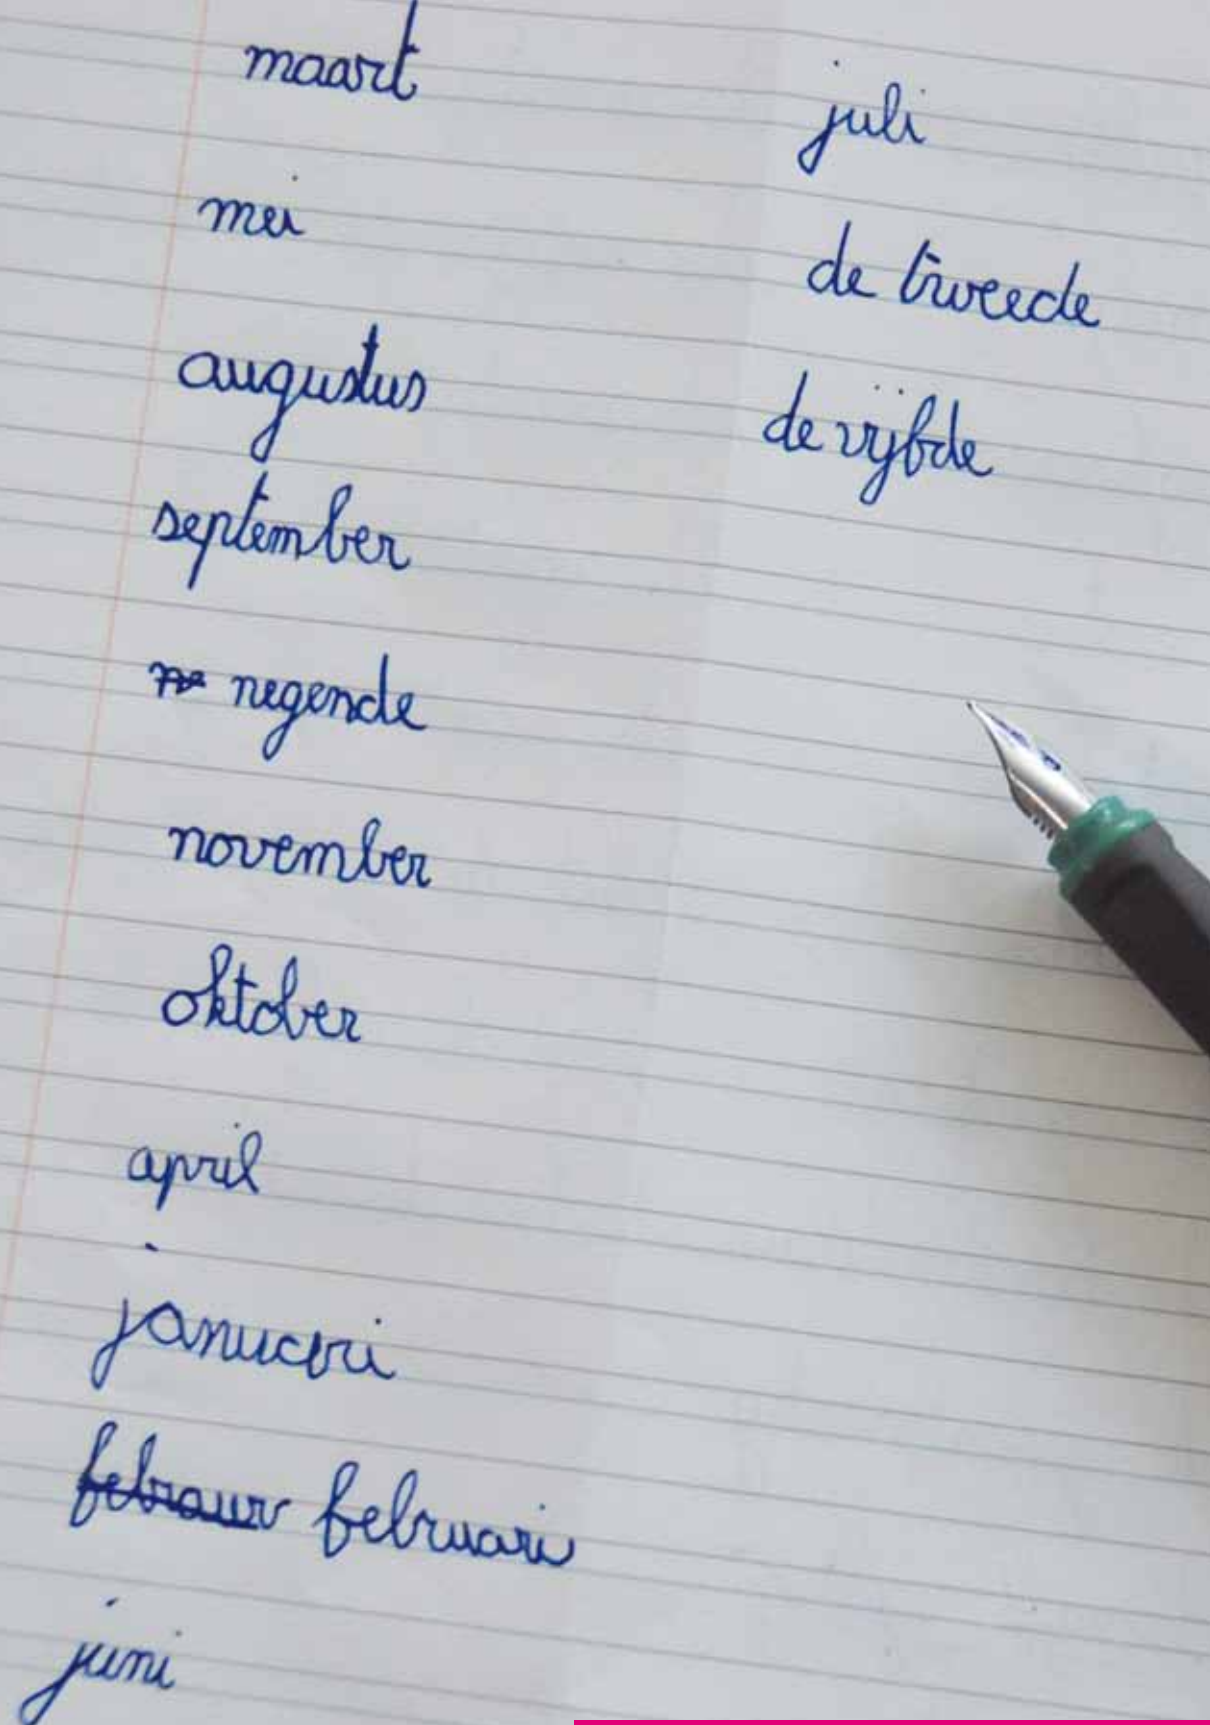 maart
mei
augustus
september
ne negende
november
oktober
april
januari
febraur februari
juni
juli
de tweede
de vijfde